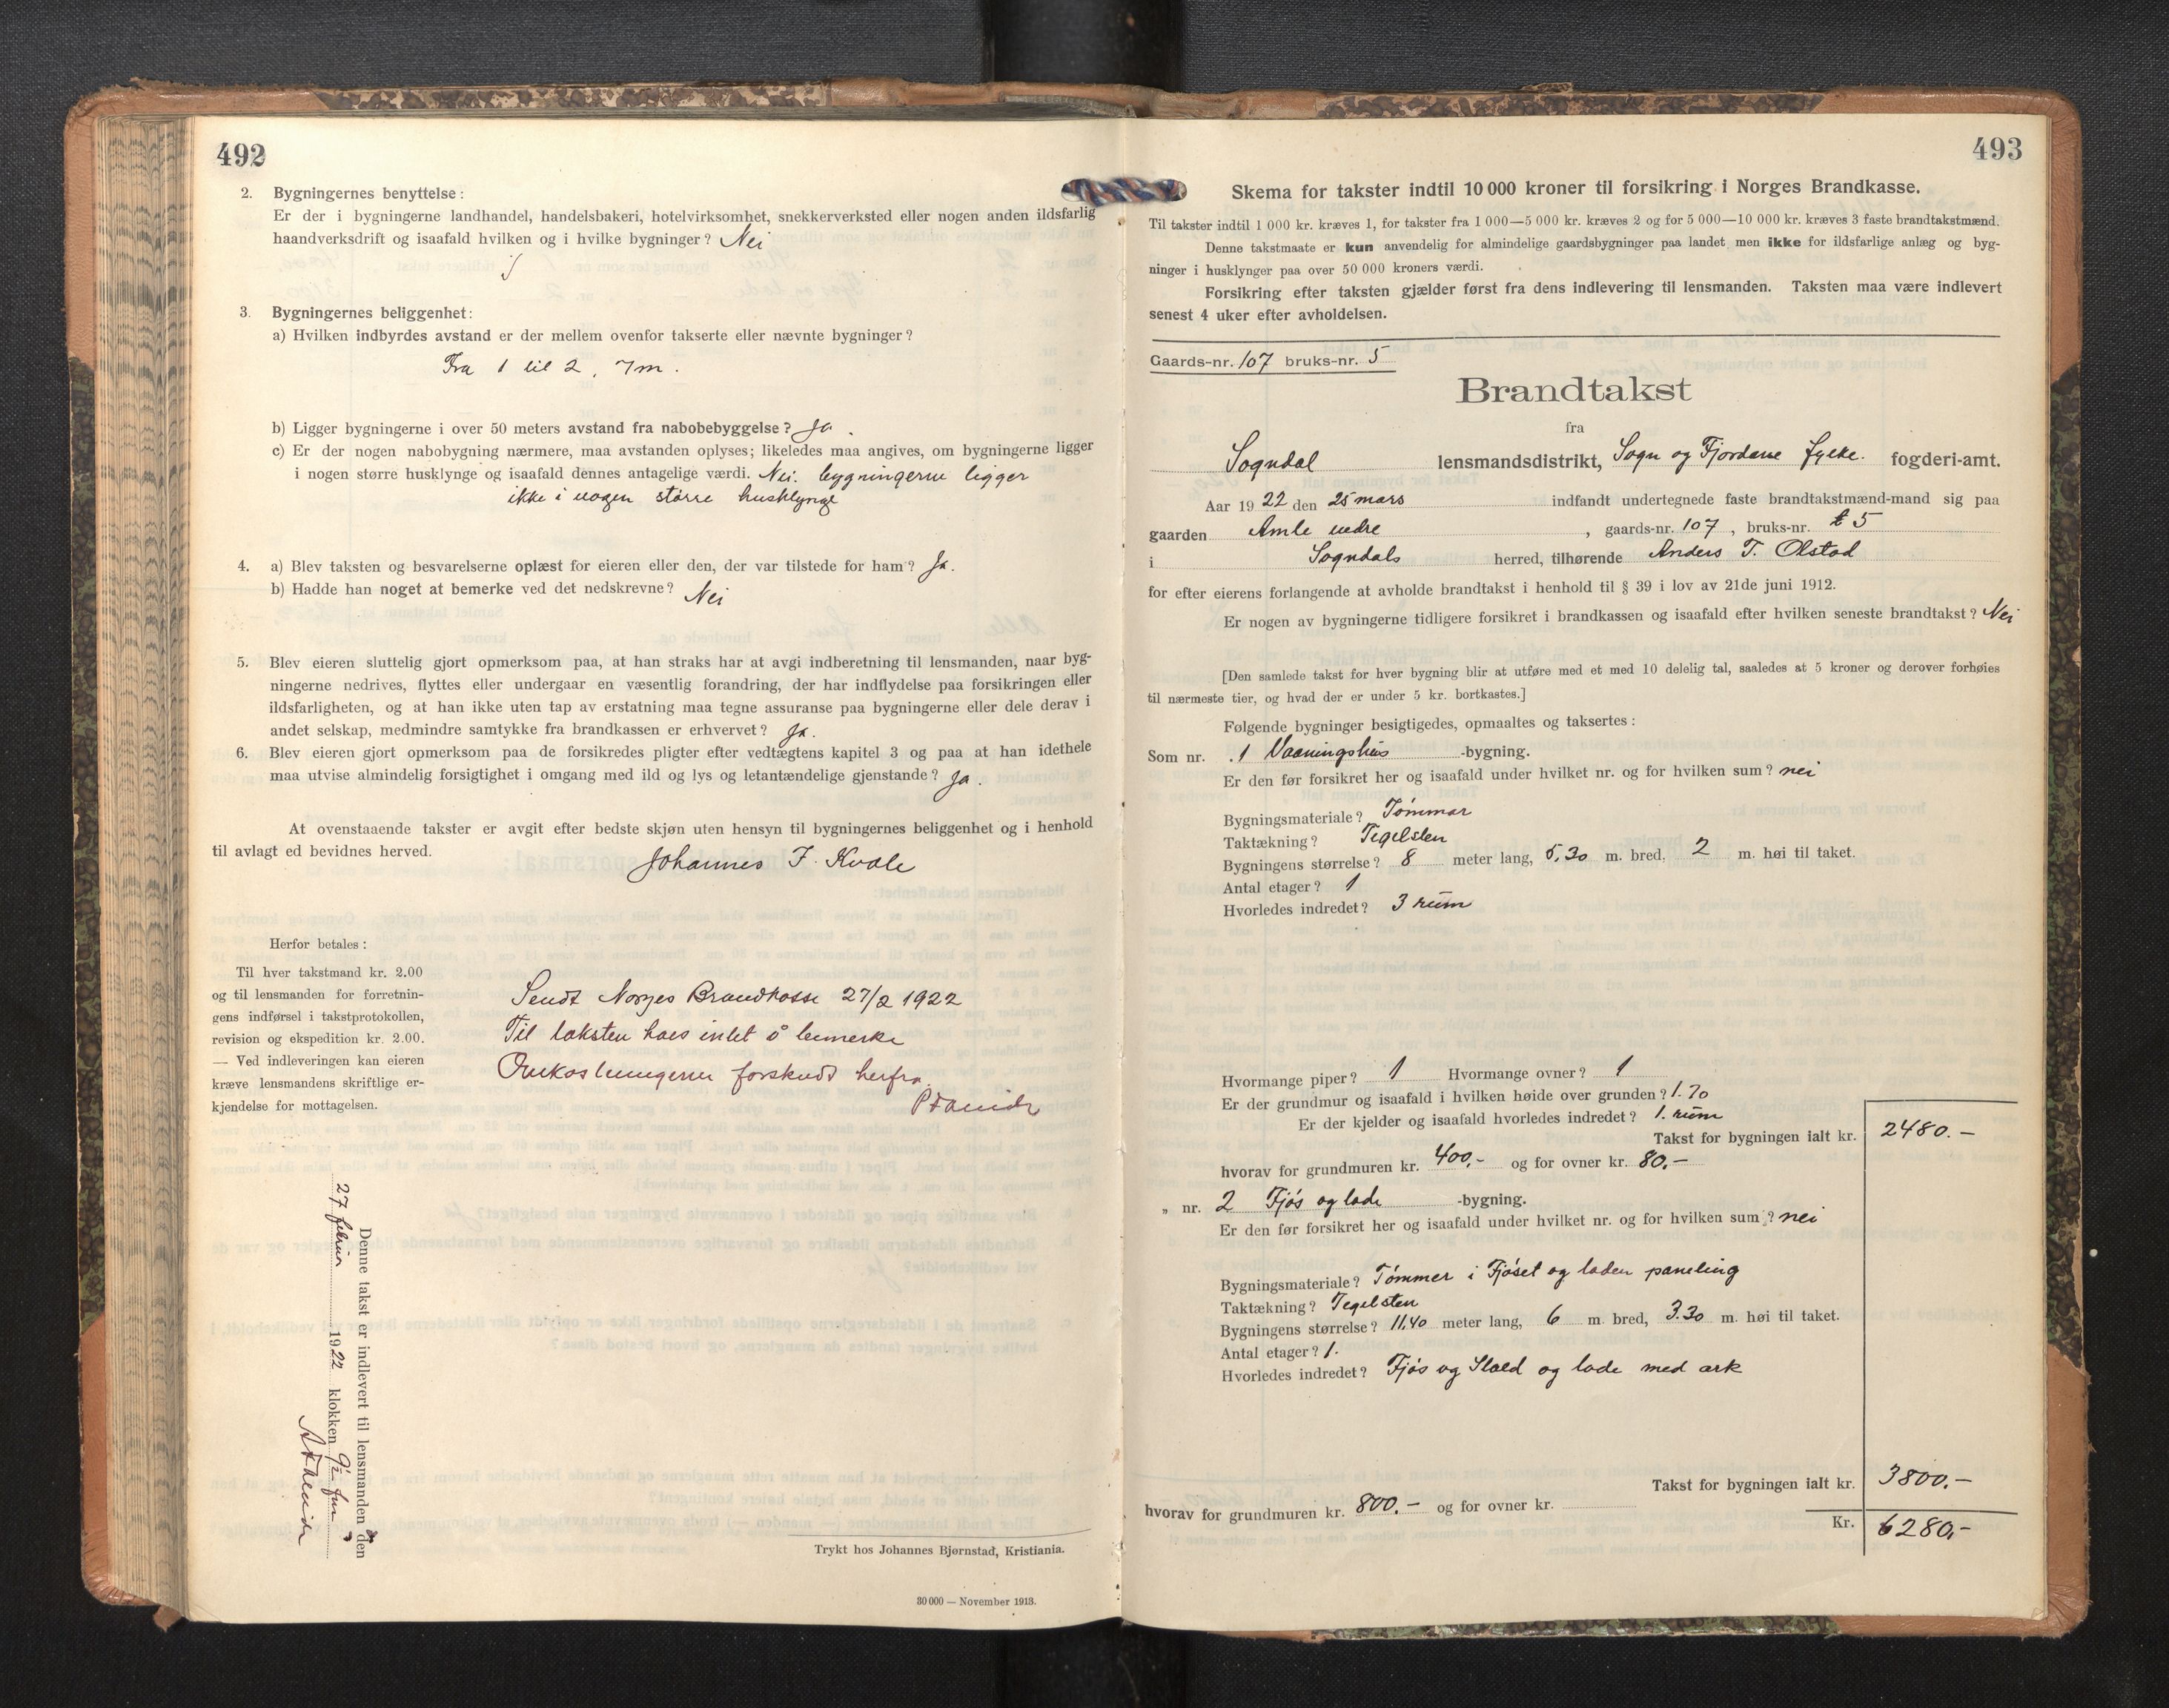 492
2. Bygningernes benyttelse:
Er der i bygningerne landhandel, handelsbakeri, hotelvirksomhet, snekkerverksted eller nogen anden ildsfarlig
haandverksdrift og isaafald hvilken og i hvilke bygninger? Nei
3. Bygningernes beliggenhet:
a) Hvilken indbyrdes avstand er der mellem ovenfor takserte eller nævnte bygninger?
Fra 1 til 2, 7m.
b) Ligger bygningerne i over 50 meters avstand fra nabobebyggelse? Ja.
c) Er der nogen nabobygning nærmere, maa avstanden oplyses; likeledes maa angives, om bygningerne ligger
i nogen større husklynge og isaafald dennes antagelige værdi. Nei. bygningerne ligger
ikke i nogen større husklynge
4. a) Blev taksten og besvarelserne oplæst for eieren eller den, der var tilstede for ham? Ja.
b) Hadde han noget at bemerke ved det nedskrevne? Nei
5. Blev eieren sluttelig gjort opmerksom paa, at han straks har at avgi indberetning til lensmanden, naar byg-
ningerne nedrives, flyttes eller undergaar en væsentlig forandring, der har indflydelse paa forsikringen eller
ildsfarligheten, og at han ikke uten tap av erstatning maa tegne assuranse paa bygningerne eller dele derav i
andet selskap, medmindre samtykke fra brandkassen er erhvervet? Ja.
6. Blev eieren gjort opmerksom paa de forsikredes pligter efter vedtægtens kapitel 3 og paa at han idethele
maa utvise almindelig forsigtighet i omgang med ild og lys og letantændelige gjenstande? Ja.
At ovenstaaende takster er avgit efter bedste skjøn uten hensyn til bygningernes beliggenhet og i henhold
til avlagt ed bevidnes herved.
Johannes J. Kvale
Herfor betales:
Til hver takstmand kr. 2.00
og til lensmanden for forretnin-
gens indførsel i takstprotokollen,
revision og ekspedition kr. 2.00.
— Ved indleveringen kan eieren
kræve lensmandens skriftlige er-
kjendelse for mottagelsen.
Sendt Norges Brandkasse 27/2 1922
Til taksten haes intet å bemerke
Omkostningerne forskudt herfra.
Denne takst er indlevert til lensmanden den
27 februar 1922 klokken 9½ fm
Trykt hos Johannes Bjørnstad, Kristiania.
30 000 — November 1913.
493
Skema for takster indtil 10 000 kroner til forsikring i Norges Brandkasse.
Til takster indtil 1 000 kr. kræves 1, for takster fra 1 000—5 000 kr. kræves 2 og for 5 000—10 000 kr. kræves 3 faste brandtakstmænd.
Denne takstmaate er kun anvendelig for almindelige gaardsbygninger paa landet men ikke for ildsfarlige anlæg og byg-
ninger i husklynger paa over 50 000 kroners værdi.
Forsikring efter taksten gjælder først fra dens indlevering til lensmanden. Taksten maa være indlevert
senest 4 uker efter avholdelsen.
Gaards-nr. 107 bruks-nr. 5
Brandtakst
fra
Sogndal lensmandsdistrikt, Sogn og Fjordane fylke. fogderi-amt.
Aar 1922 den 25 mars indfandt undertegnede faste brandtakstmænd-mand sig paa
gaarden Amle nedre, gaards-nr. 107, bruks-nr. 5
i Sogndals herred, tilhørende Anders T. Olstad
for efter eierens forlangende at avholde brandtakst i henhold til § 39 i lov av 21de juni 1912.
Er nogen av bygningerne tidligere forsikret i brandkassen og isaafald efter hvilken seneste brandtakst? Nei
[Den samlede takst for hver bygning blir at utføre med et med 10 delelig tal, saaledes at 5 kroner og derover forhøies
til nærmeste tier, og hvad der er under 5 kr. bortkastes.]
Følgende bygninger besigtigedes, opmaaltes og taksertes:
Som nr. 1 Vaaningshus -bygning.
Er den før forsikret her og isaafald under hvilket nr. og for hvilken sum? nei
Bygningsmateriale? Tømmer
Taktækning? Tegelsten
Bygningens størrelse? 8 meter lang, 5,30 m. bred, 2 m. høi til taket.
Antal etager? 1
Hvorledes indredet? 3 rum
Hvormange piper? 1 Hvormange ovner? 1
Er der grundmur og isaafald i hvilken høide over grunden? 1.70
Er der kjelder og isaafald hvorledes indredet? 1. rum
Takst for bygningen ialt kr. 2480.-
hvorav for grundmuren kr. 400,- og for ovner kr. 80,-
„ nr. 2 Fjøs og lade -bygning.
Er den før forsikret her og isaafald under hvilket nr. og for hvilken sum? nei
Bygningsmateriale? Tømmer i Fjøset og laden paneling
Taktækning? Tegelsten
Bygningens størrelse? 11,40 meter lang, 6 m bred, 3.30 m. høi til taket.
Antal etager? 1.
Hvorledes indredet? Fjøs og Stald og lade med ark
Takst for bygningen ialt kr. 3800,-
hvorav for grundmuren kr. 800.- og for ovner kr.
Kr. 6280,-